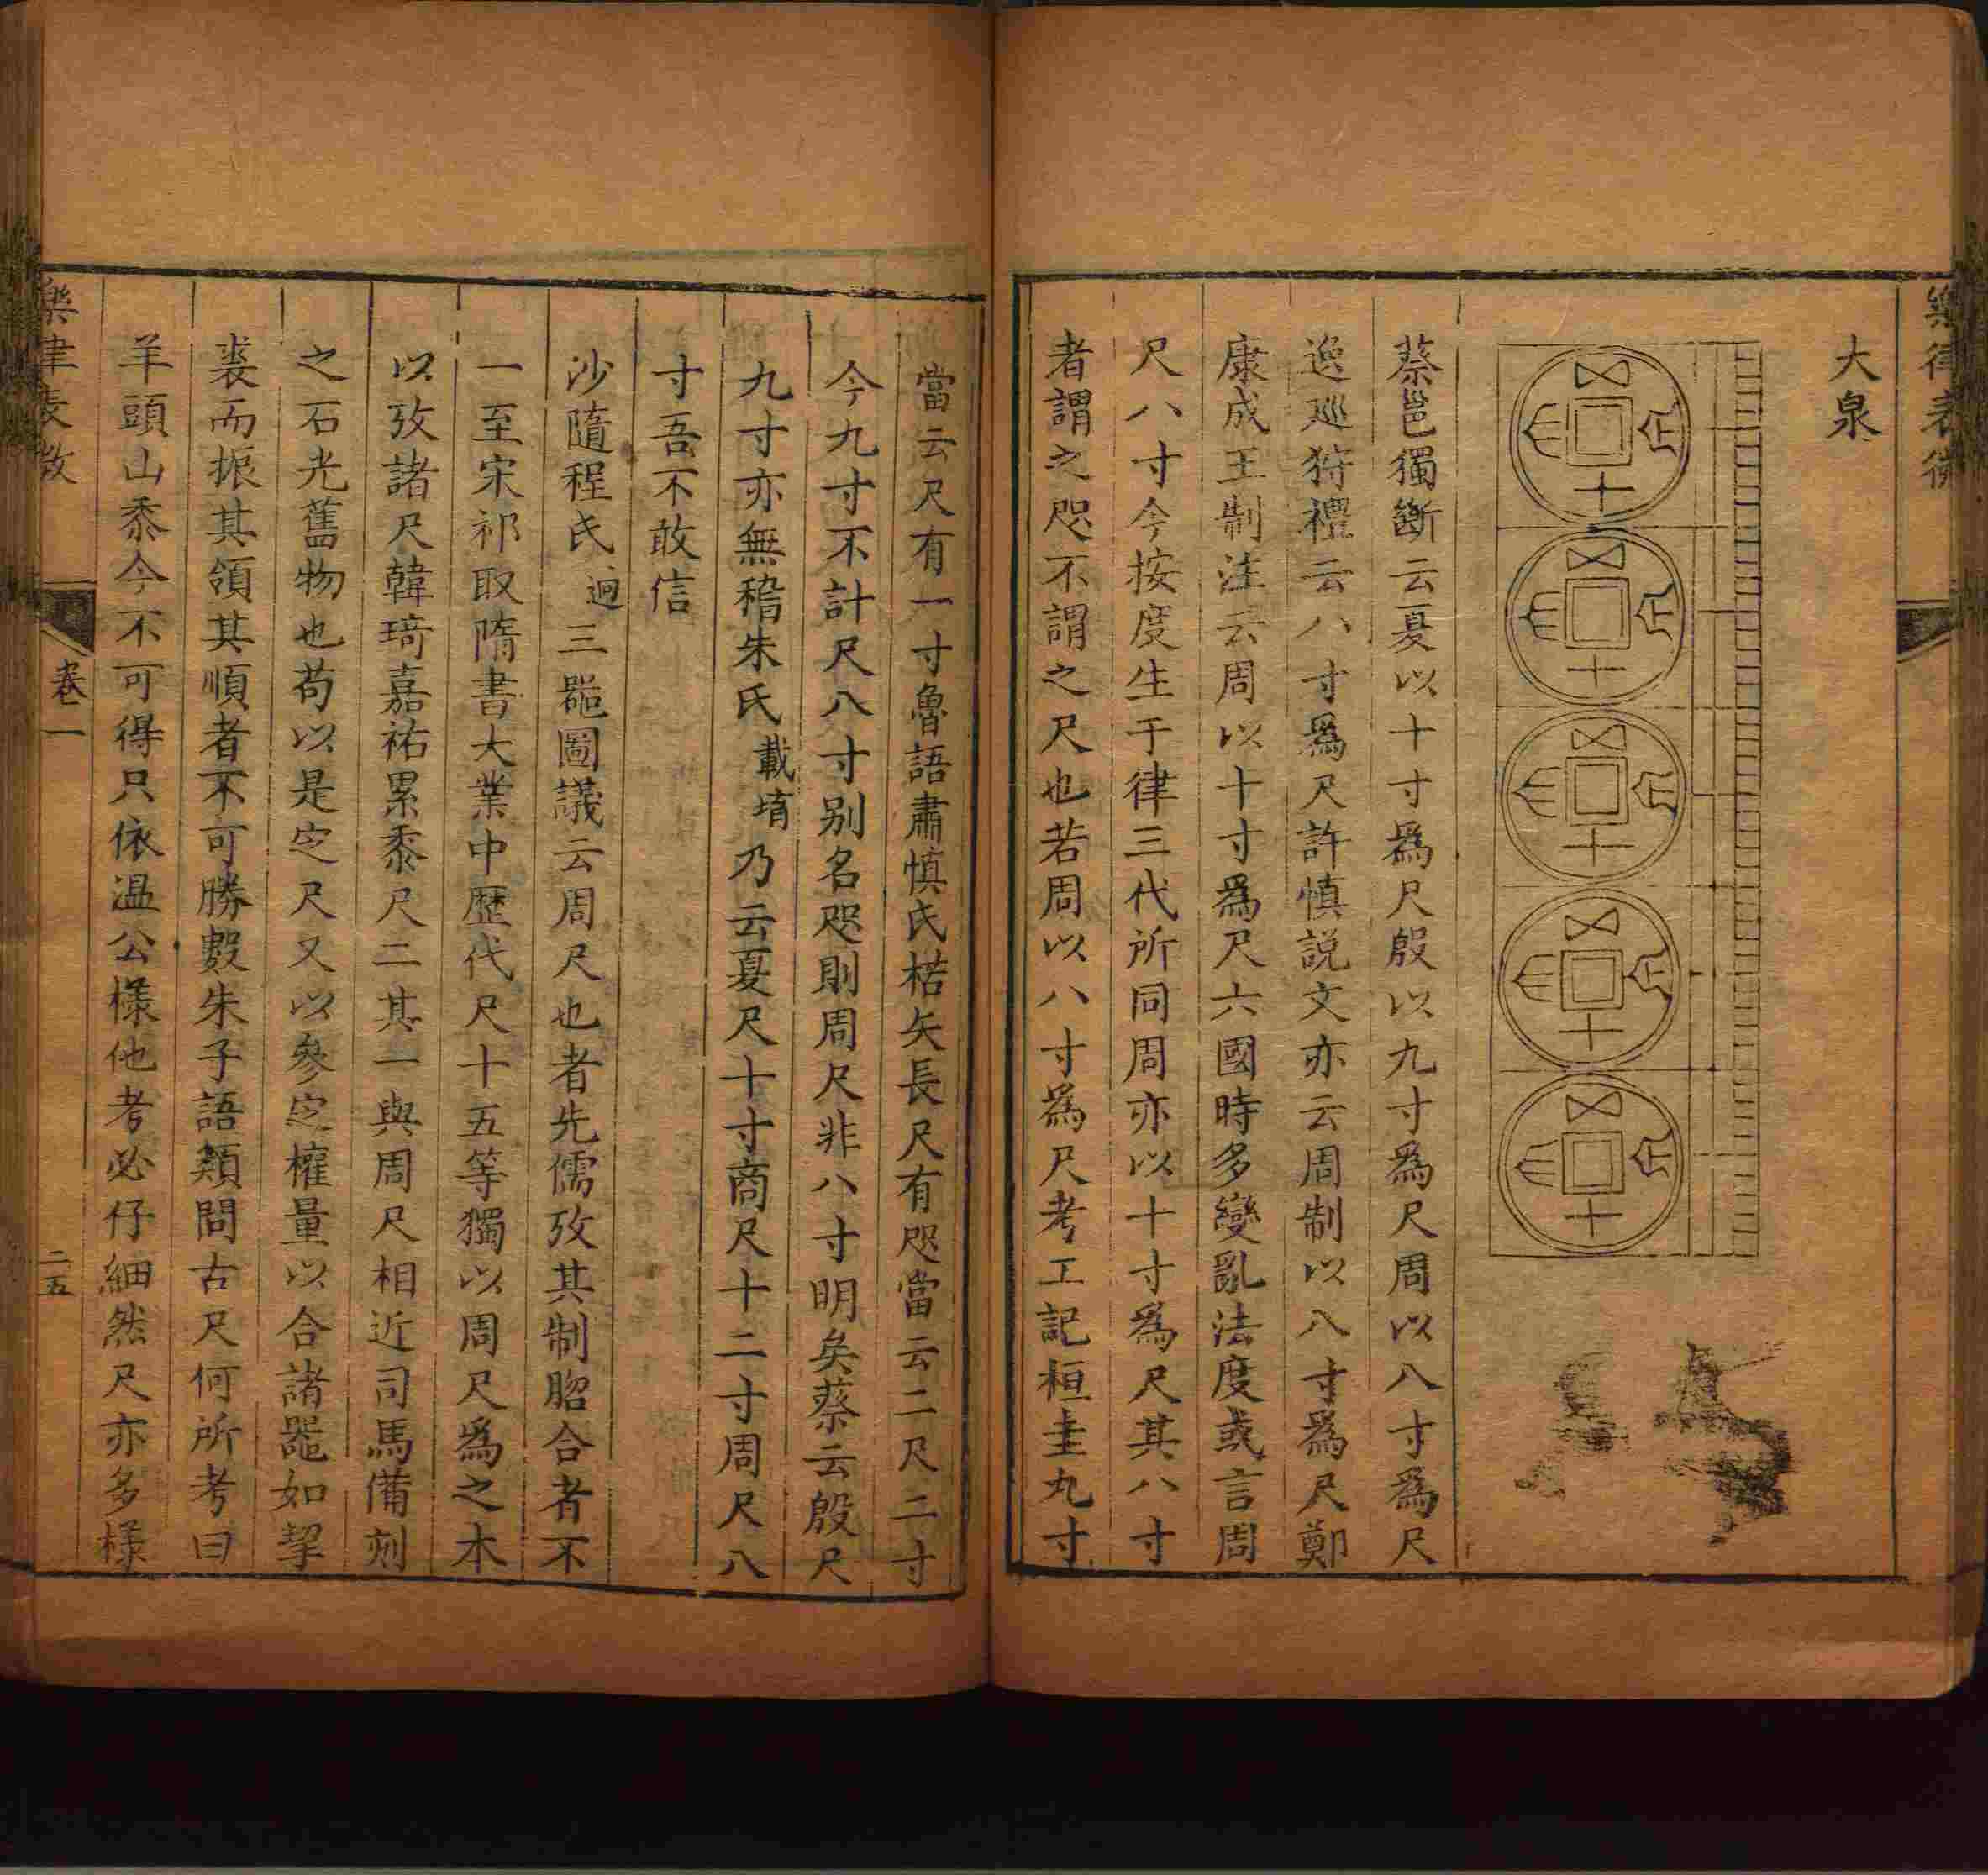 樂律表微
大泉
蔡邕獨斷云夏以十寸爲尺殷以九寸爲尺周以八寸爲尺
逸廵狩禮云八寸爲尺許慎説文亦云周制以八寸爲尺鄭
康成王制注云周以十寸爲尺六國時多變亂法度或言周
尺八寸今按度生于律三代所同周亦以十寸爲尺其八寸
者謂之咫不謂之尺也若周以八寸爲尺考工記桓圭九寸
當云尺有一寸魯語肅慎氏楛矢長尺有咫當云二尺二寸
今九寸不計尺八寸别名咫則周尺非八寸明矣蔡云殷尺
九寸亦無稽朱氏載堉乃云夏尺十寸商尺十二寸周尺八
寸吾不敢信
沙隨程氏迥三器圖議云周尺也者先儒攷其制脗合者不
一至宋祁取隋書大業中歴代尺十五等獨以周尺爲之本
以攷諸尺韓琦嘉祐累黍尺二其一與周尺相近司馬備刻
之石光舊物也苟以是定尺又以參定權量以合諸器如挈
裘而振其領其順者不可勝數朱子語類問古尺何所考曰
羊頭山黍今不可得只依温公様他考必仔細然尺亦多様
樂律表微
卷一
二五